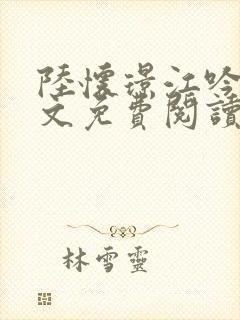 陸懷璟江吟
文免費閱讀
林雪靈